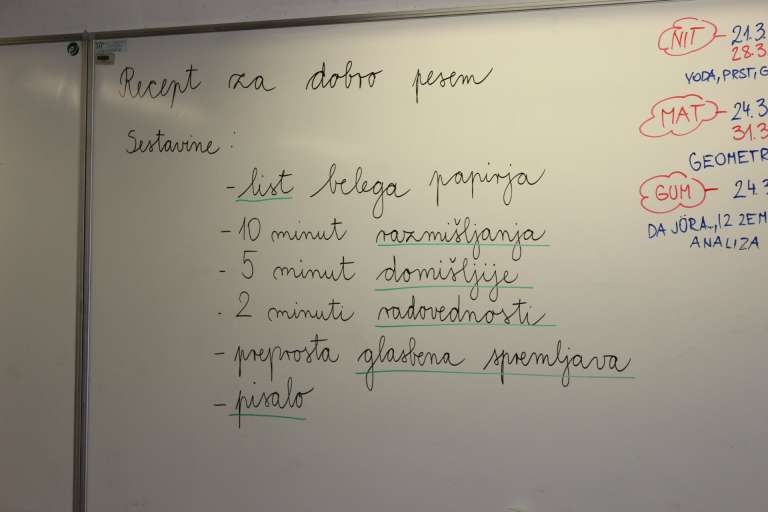 Recept za dobro pesem
Sestavine:
- list belega papirja
- 10 minut razmišljanja
- 5 minut domišljije
- 2 minuti radovednosti
- preprosta glasbena spremljava
- pisalo
NIT - 21.3.
28.3
VODA, PRST, G
MAT - 24.3
31.3
GEOMETR
GUM - 24.3
DA JÖRA.., 12 ZEM
ANALIZA